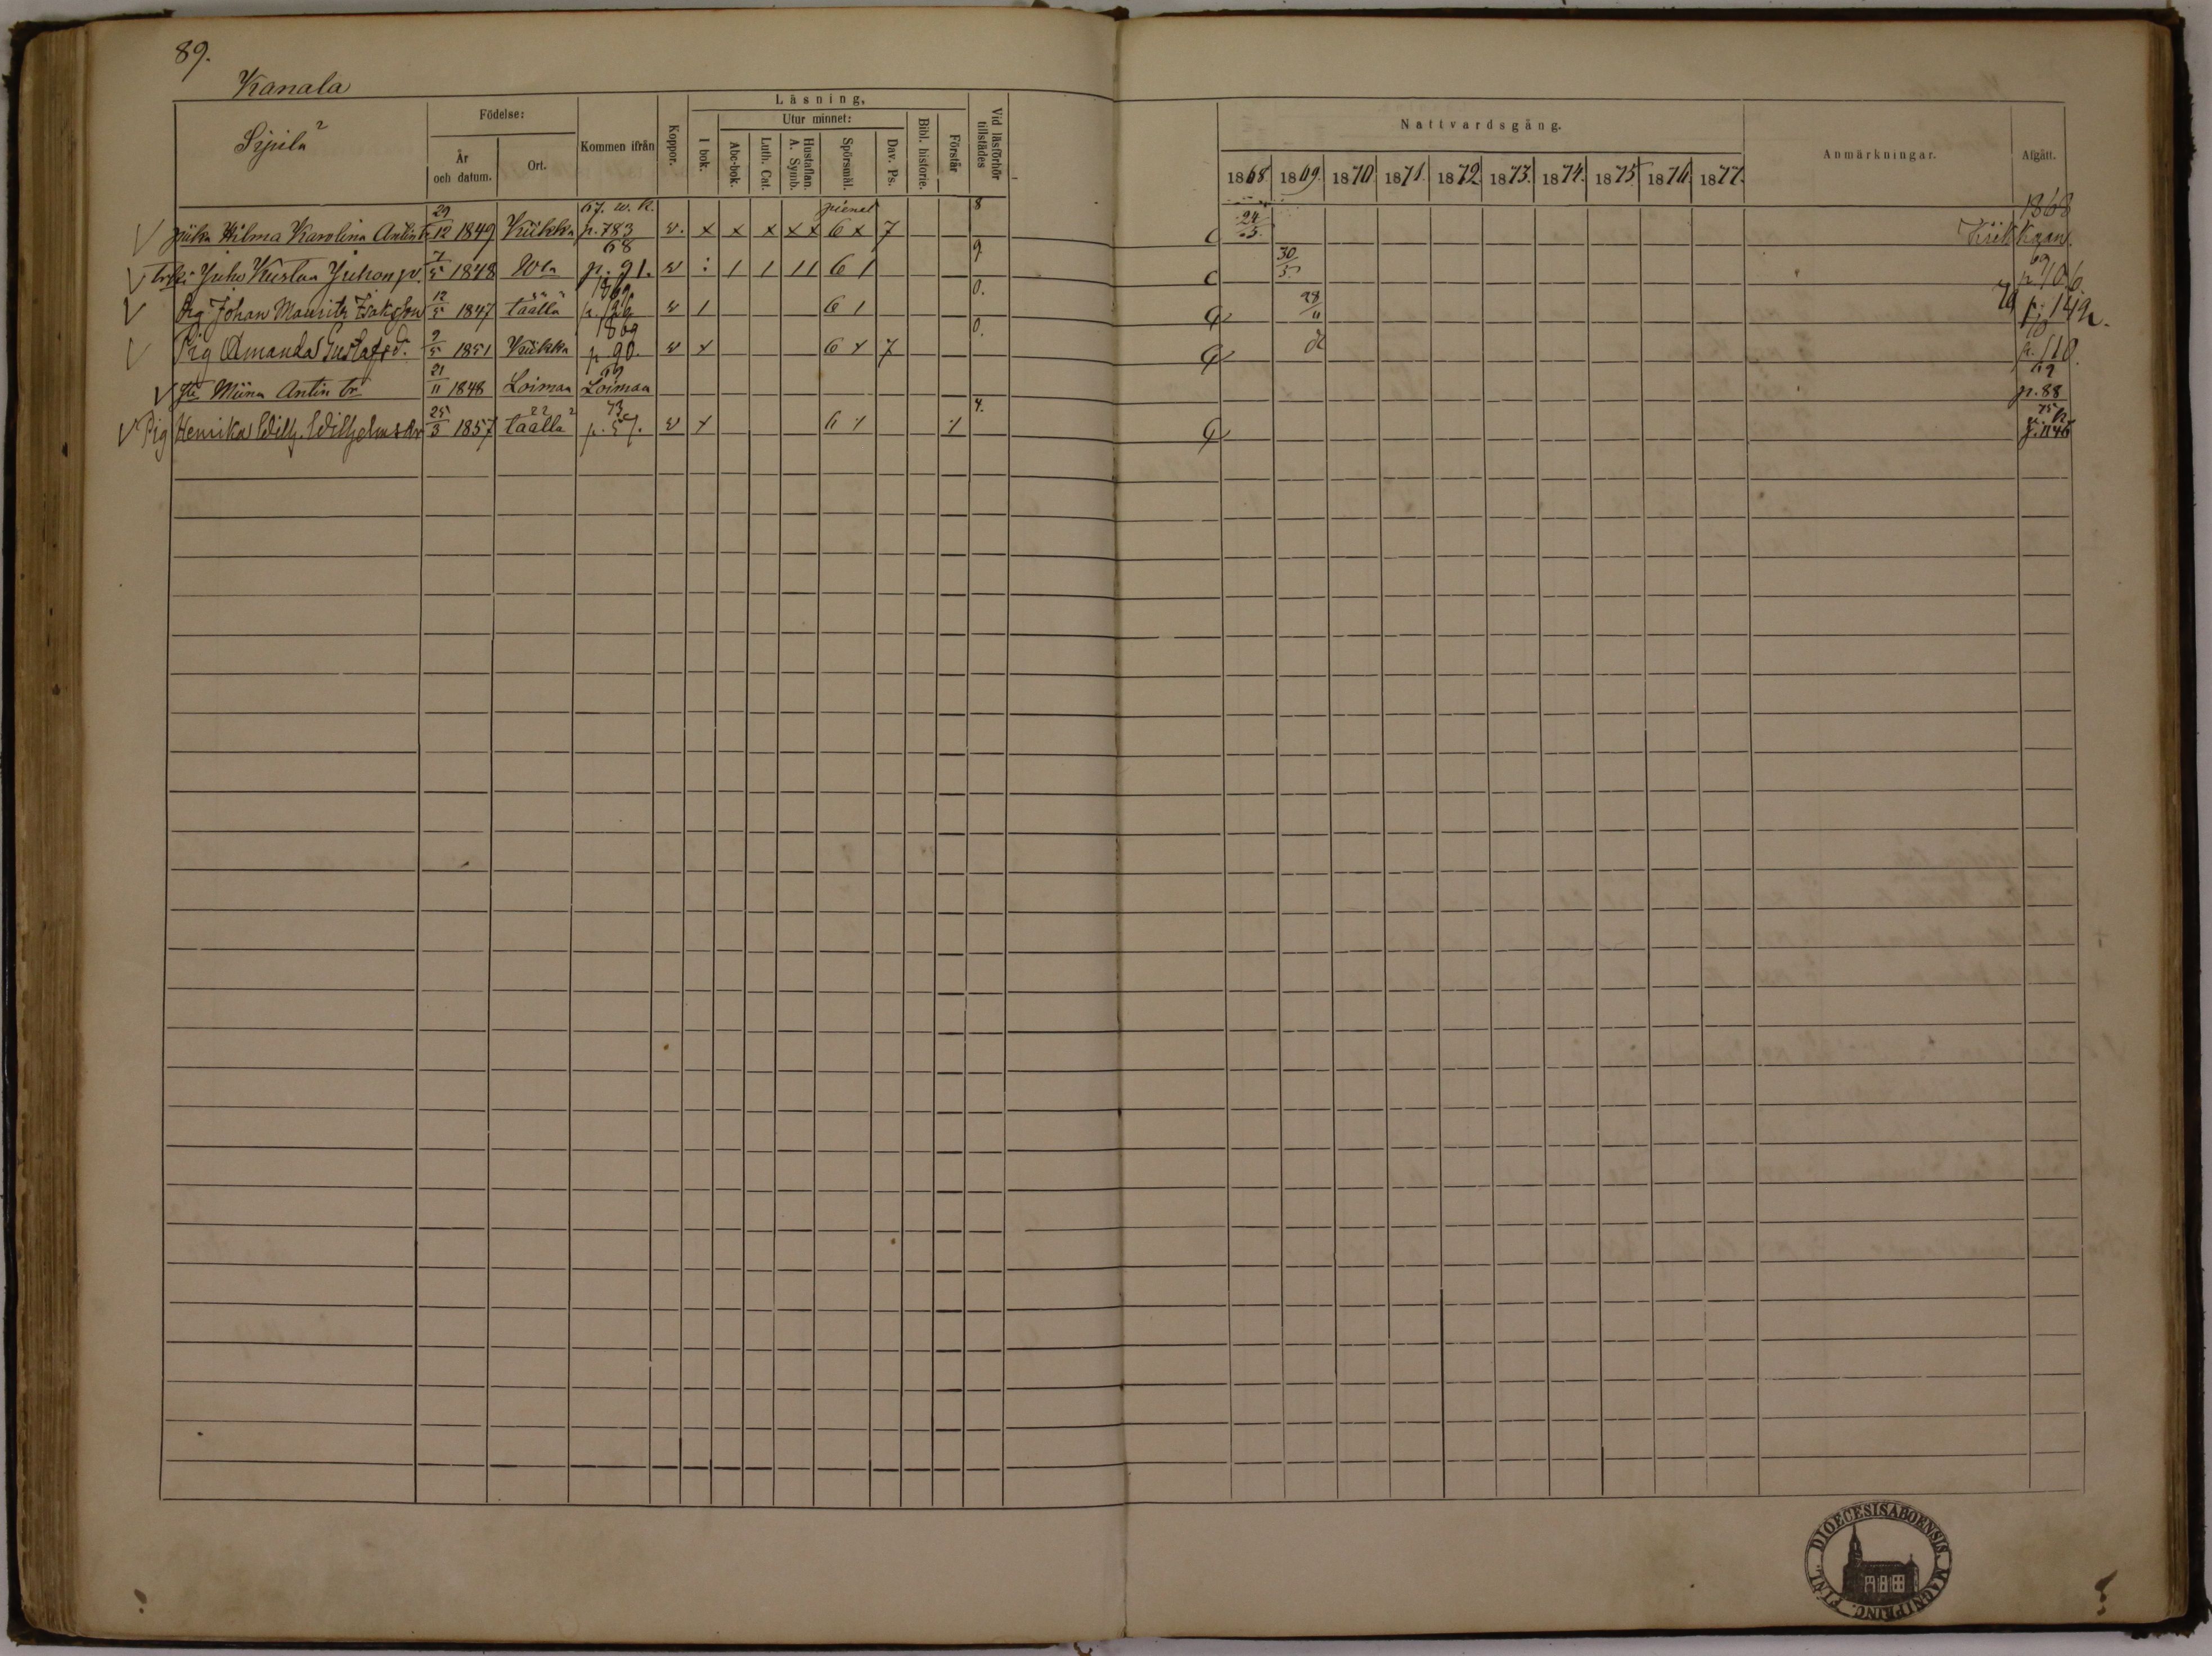 89.
Kanala
Läsning,
Födelse:
Utur minnet:
Kommen ifrån
Koppor.
I bok.
Abc-bok.
Luth. Cat.
Hustaflan. A. Symb.
Spörsmål.
Dav. Ps.
Bibl. historie.
Förstår
Vid läsförhör tillstädes
År och datum.
Ort.
Nattvardsgång.
Anmärkningar.
Afgått.
1868 1869. 1870. 1871. 1872. 1873. 1874. 1875. 1876. 1877.
piika Hilma Karolina Antint. 29/12 1849 Kiikka 67. w. K. p. 783 w. x x x x x 6 x 7 8 24/5. 1868
Juho Kustaa Juhonp. 7/5 1848 68 p. 91. w : 1 1 11 6 1 9 30/5 69 p. 106
Johan Mauritz Isaksson 12/5 1847 täällä 1869 w 1 6 1 0. 28/11 70 p. 149
Pig Amanda Gustafsd. 9/5 1851 Kiikka 1869 p. 90. w x 6 x 7 0. 70 p. 110.
Miina Antin tr 21/11 1848 Loimaa 69 Loimaa 69 p. 88
Pig Henrika Wilh. Wilhelmsdr 25/3 1857 täällä 73 p. 57. w x 6 4. 75
DIOECESIS ABOENSIS. MAGNI PRINC. FINL.